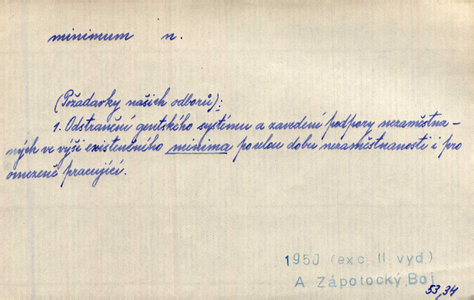 minimum n.
(Požadavky našich odborů):
1. Odstranění gentského systému a zavedení podpory nezaměstna-
ných ve výši existenčního minima po celou dobu nezaměstnanosti i pro
omezeně pracující.
1950 (exc. II vyd)
A Zápotocký, Boj
53,34